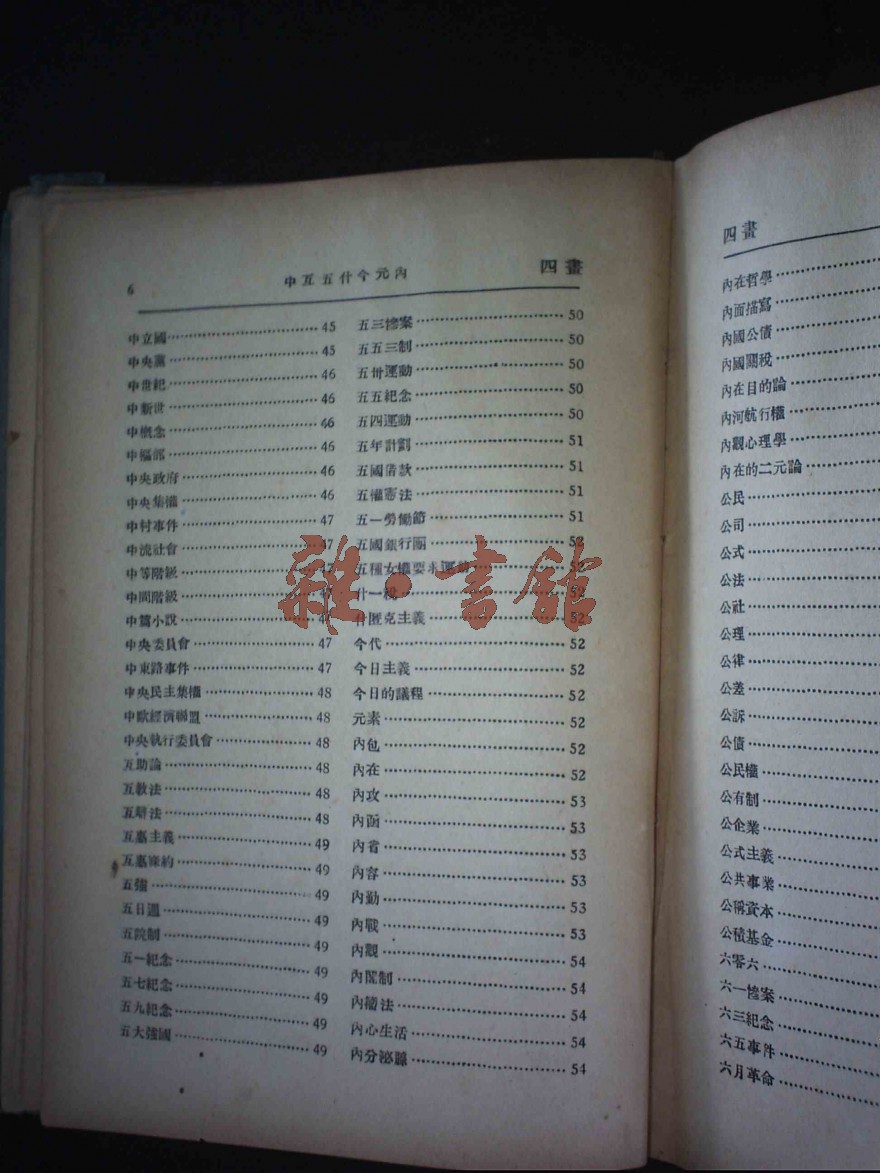 6 中互五什今元內 四畫
中立國 45
中央黨 45
中世紀 46
中新世 46
中概念 46
中樞部 46
中央政府 46
中央集權 46
中村事件 47
中流社會 47
中等階級 47
中間階級 47
中篇小說 47
中央委員會 47
中東路事件 47
中央民主集權 48
中歐經濟聯盟 48
中央執行委員會 48
互助論 48
互教法 48
互研法 48
互惠主義 49
互惠條約 49
五強 49
五日週 49
五院制 49
五一紀念 49
五七紀念 49
五九紀念 49
五大強國 49
五三慘案 50
五五三制 50
五卅運動 50
五五紀念 50
五四運動 50
五年計劃 51
五國借款 51
五權憲法 51
五一勞働節 51
五國銀行團 52
五種女權要求運動 52
什一稅 52
什匪克主義 52
今代 52
今日主義 52
今日的議程 52
元素 52
內包 52
內在 52
內攻 53
內函 53
內省 53
內容 53
內勤 53
內戰 53
內觀 54
內閣制 54
內積法 54
內心生活 54
內分泌腺 54
四畫
內在哲學
內面描寫
內國公債
內國關稅
內在目的論
內河航行權
內觀心理學
內在的二元論
公民
公司
公式
公法
公社
公理
公律
公差
公訴
公債
公民權
公有制
公企業
公式主義
公共事業
公稱資本
公積基金
六零六
六一慘案
六三紀念
六五事件
六月革命
雜·書館